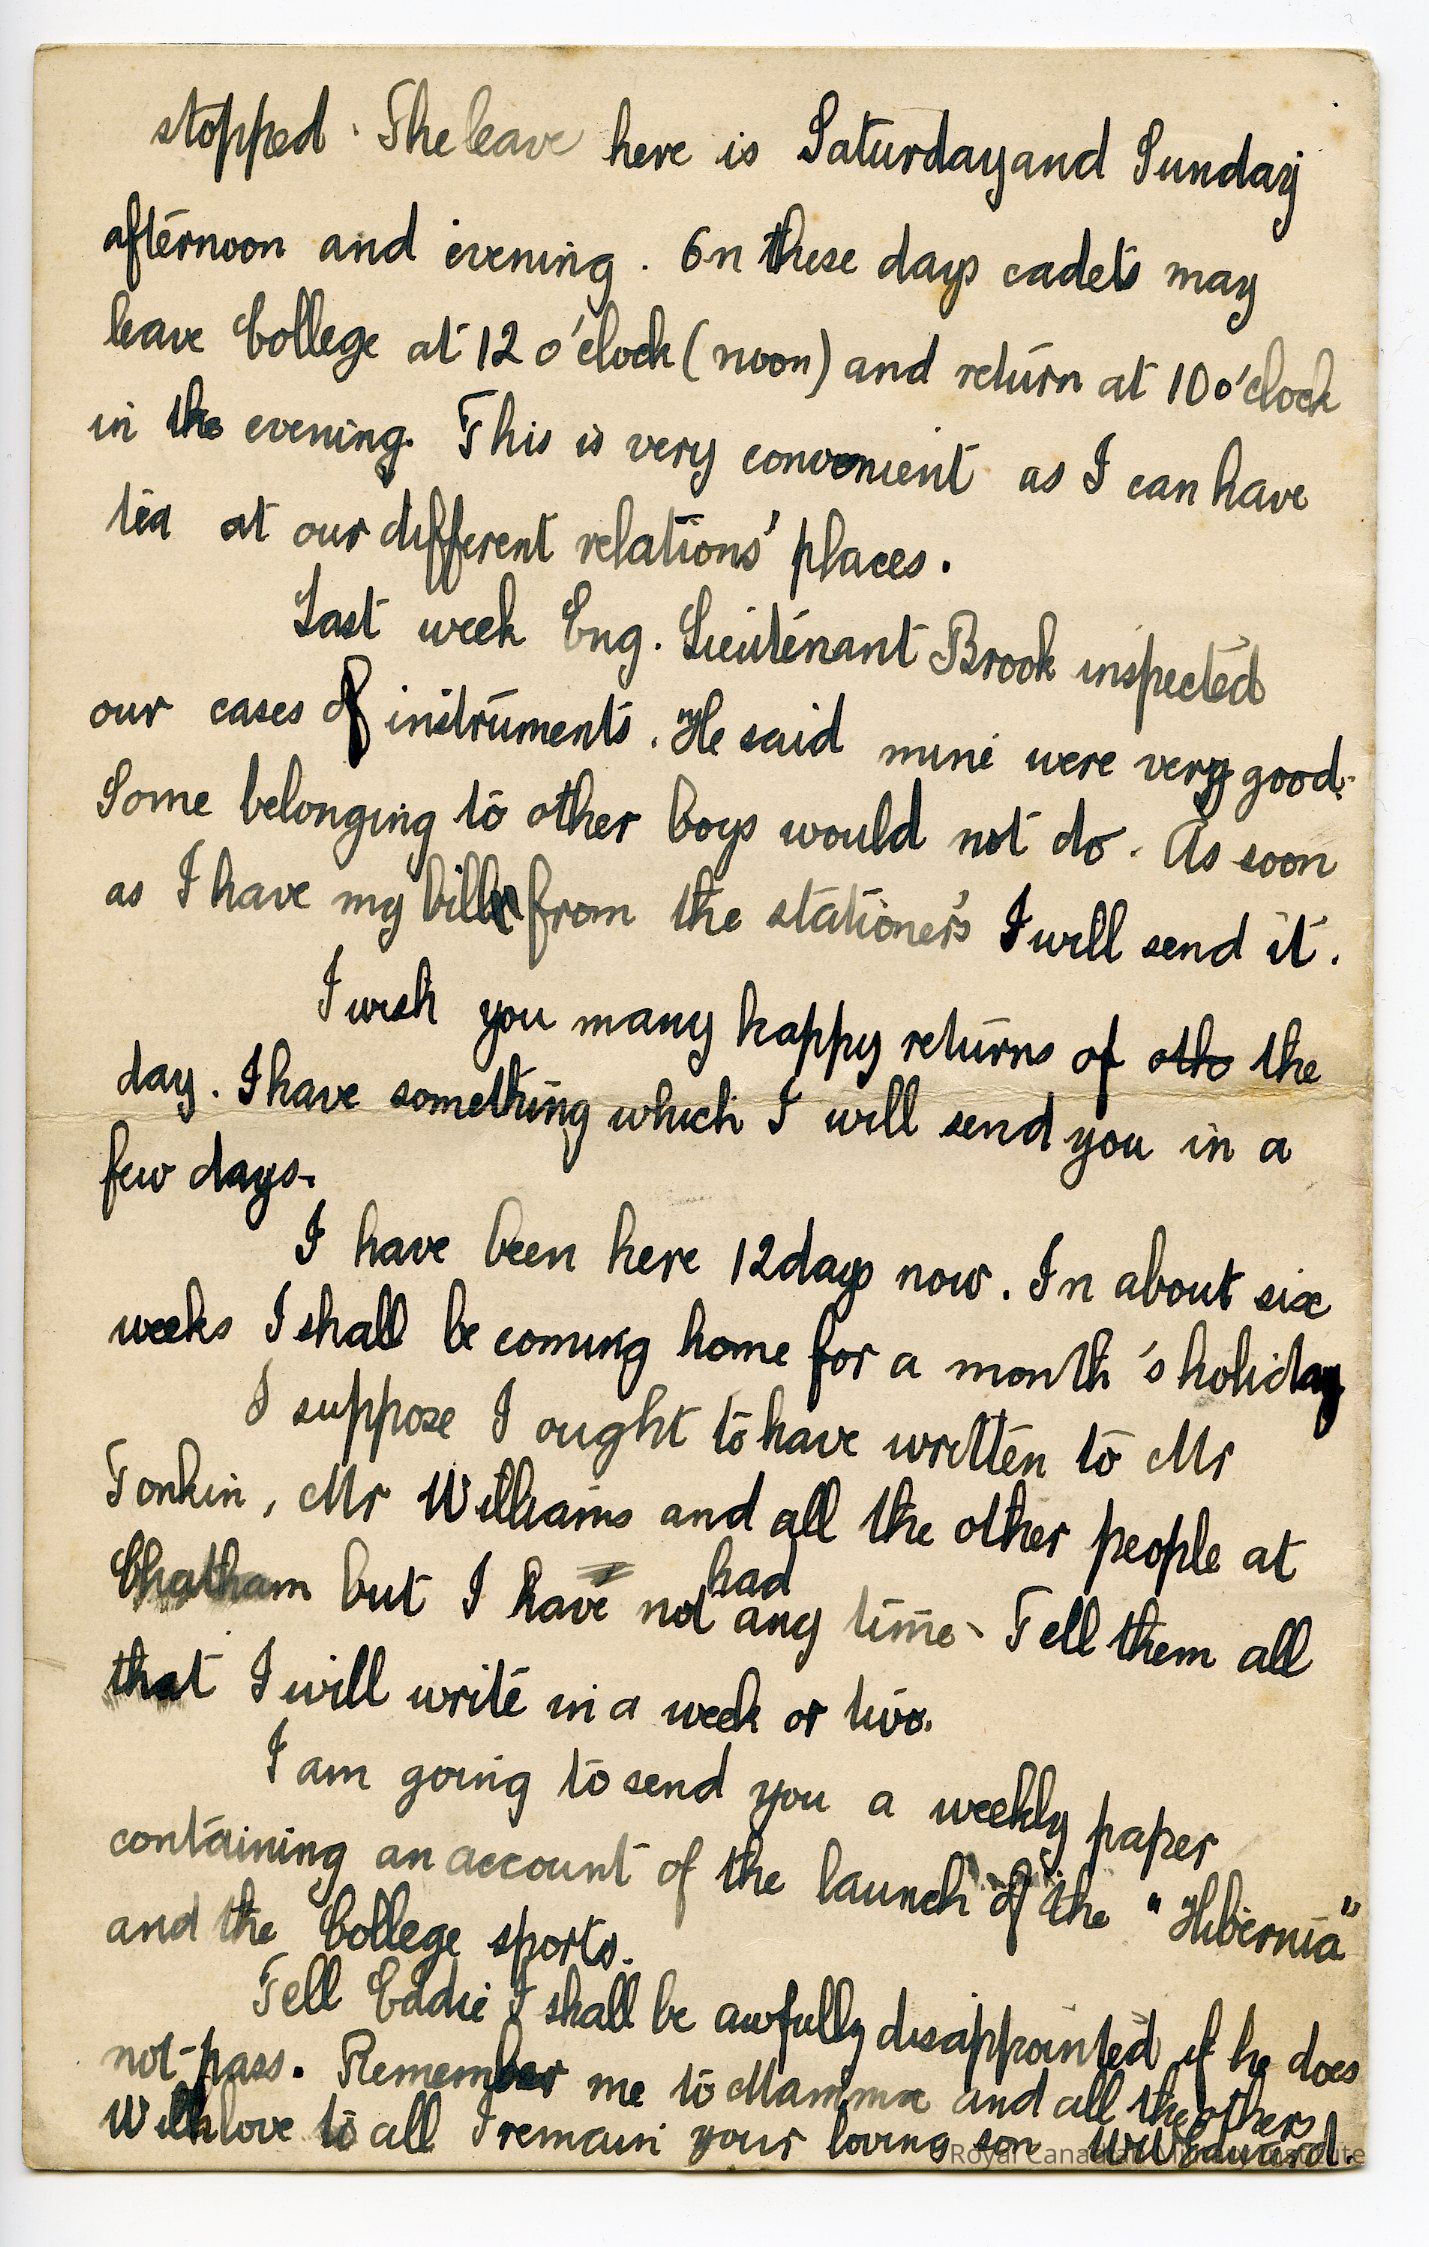 stopped. The leave here is Saturday and Sunday
afternoon and evening. On these days cadets may
leave College at 12 o'clock (noon) and return at 10 o'clock
in the evening. This is very convenient as I can have
tea at our different relations' places.
Last week Eng. Lieutenant Brook inspected
our cases of instruments. He said mine were very good.
Some belonging to other boys would not do. As soon
as I have my bill from the stationer's I will send it.
I wish you many happy returns of oth the
day. I have something which I will send you in a
few days.
I have been here 12 days now. In about six
weeks I shall be coming home for a month's holiday
I suppose I ought to have written to Mr
Tonkin, Mr Williams and all the other people at
Chatham but I have not had any time. Tell them all
that I will write in a week or two.
I am going to send you a weekly paper
containing an account of the launch of the "Hibernia"
and the College sports.
Tell Eddie I shall be awfully disappointed if he does
not pass. Remember me to Mamma and all the others
With love to all I remain your loving son
Royal Canadian Military Institute